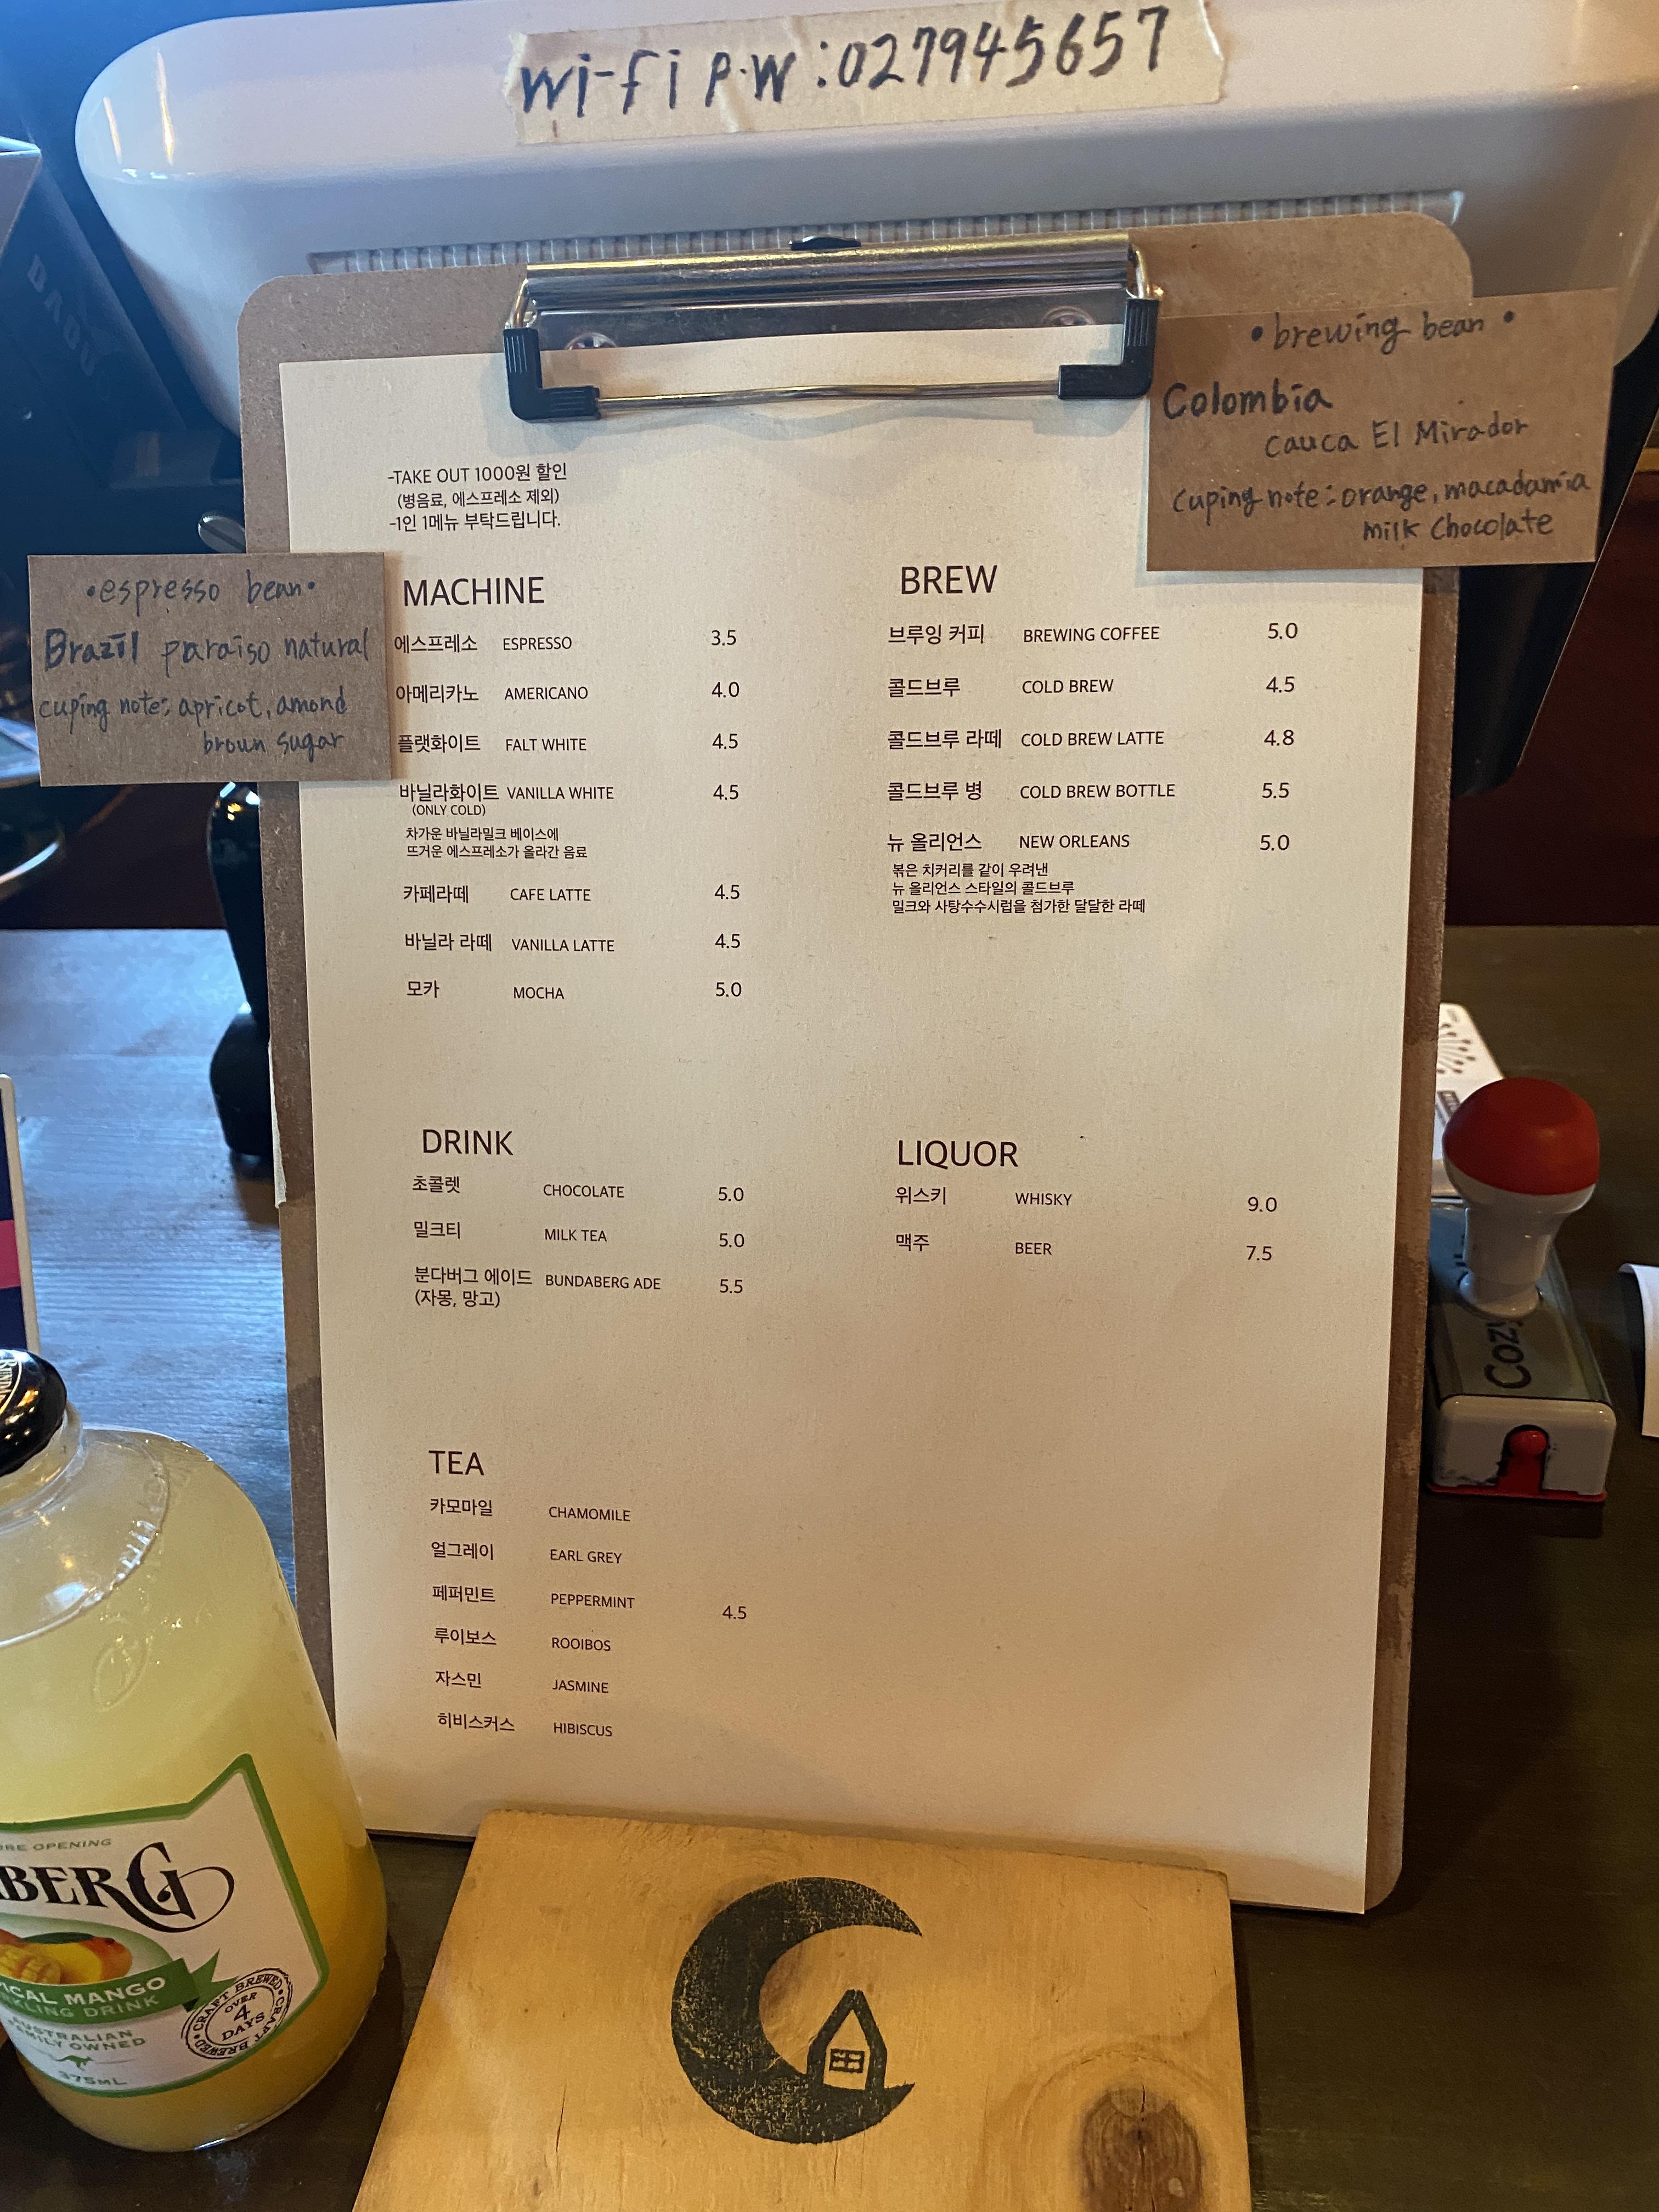 wi-fi P.W : 027945657
•brewing bean•
Colombia
cauca El Mirador
cuping note : orange, macadamia
milk chocolate
-TAKE OUT 1000원 할인
(병음료, 에스프레소 제외)
-1인 1메뉴 부탁드립니다.
•espresso bean•
Brazil paraiso natural
cuping note: apricot, amond
broun sugar
MACHINE
에스프레소 ESPRESSO 3.5
아메리카노 AMERICANO 4.0
플랫화이트 FALT WHITE 4.5
바닐라화이트 VANILLA WHITE 4.5
(ONLY COLD)
차가운 바닐라밀크 베이스에
뜨거운 에스프레소가 올라간 음료
카페라떼 CAFE LATTE 4.5
바닐라 라떼 VANILLA LATTE 4.5
모카 MOCHA 5.0
BREW
브루잉 커피 BREWING COFFEE 5.0
콜드브루 COLD BREW 4.5
콜드브루 라떼 COLD BREW LATTE 4.8
콜드브루 병 COLD BREW BOTTLE 5.5
뉴 올리언스 NEW ORLEANS 5.0
볶은 치커리를 같이 우려낸
뉴 올리언스 스타일의 콜드브루
밀크와 사탕수수시럽을 첨가한 달달한 라떼
DRINK
초콜렛 CHOCOLATE 5.0
밀크티 MILK TEA 5.0
분다버그 에이드 BUNDABERG ADE 5.5
(자몽, 망고)
LIQUOR
위스키 WHISKY 9.0
맥주 BEER 7.5
TEA
카모마일 CHAMOMILE
얼그레이 EARL GREY
페퍼민트 PEPPERMINT 4.5
루이보스 ROOIBOS
자스민 JASMINE
히비스커스 HIBISCUS
OPENING
BERG
ICAL MANGO
KLING DRINK
AUSTRALIAN
FAMILY OWNED
375ML
CRAFT BREWED
OVER
4
DAYS
CRAFT BREWED
Cozi